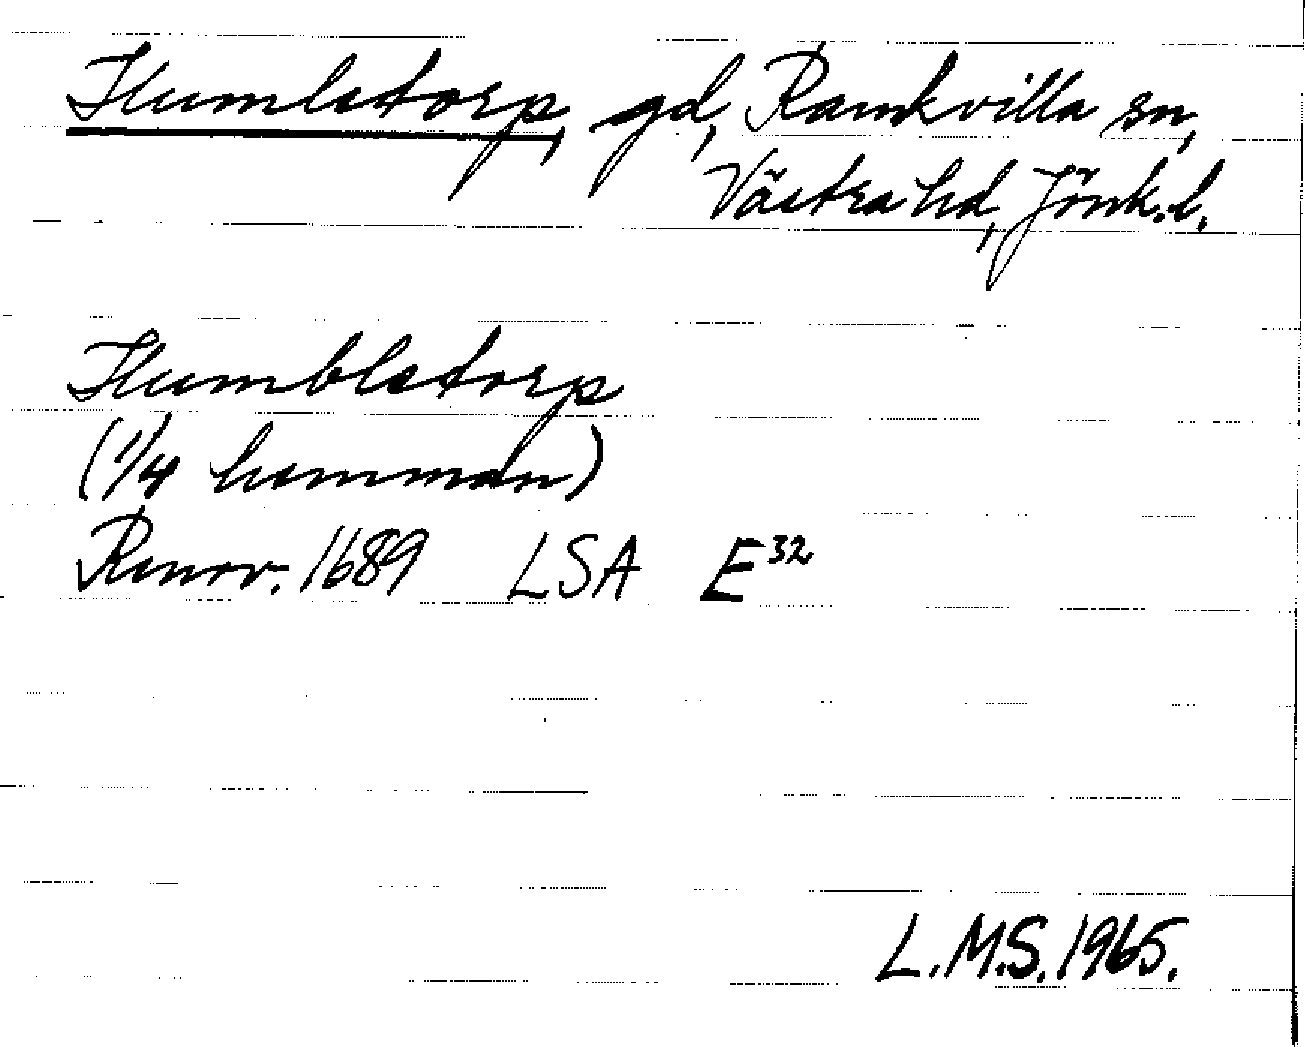 Humlstorp, gd, Ramkvilla sn,
Västra hd, Jönk.l.
Humblstorp
(1/4 hemman)
Renov. 1689 LSA E32
L.M.S. 1965.